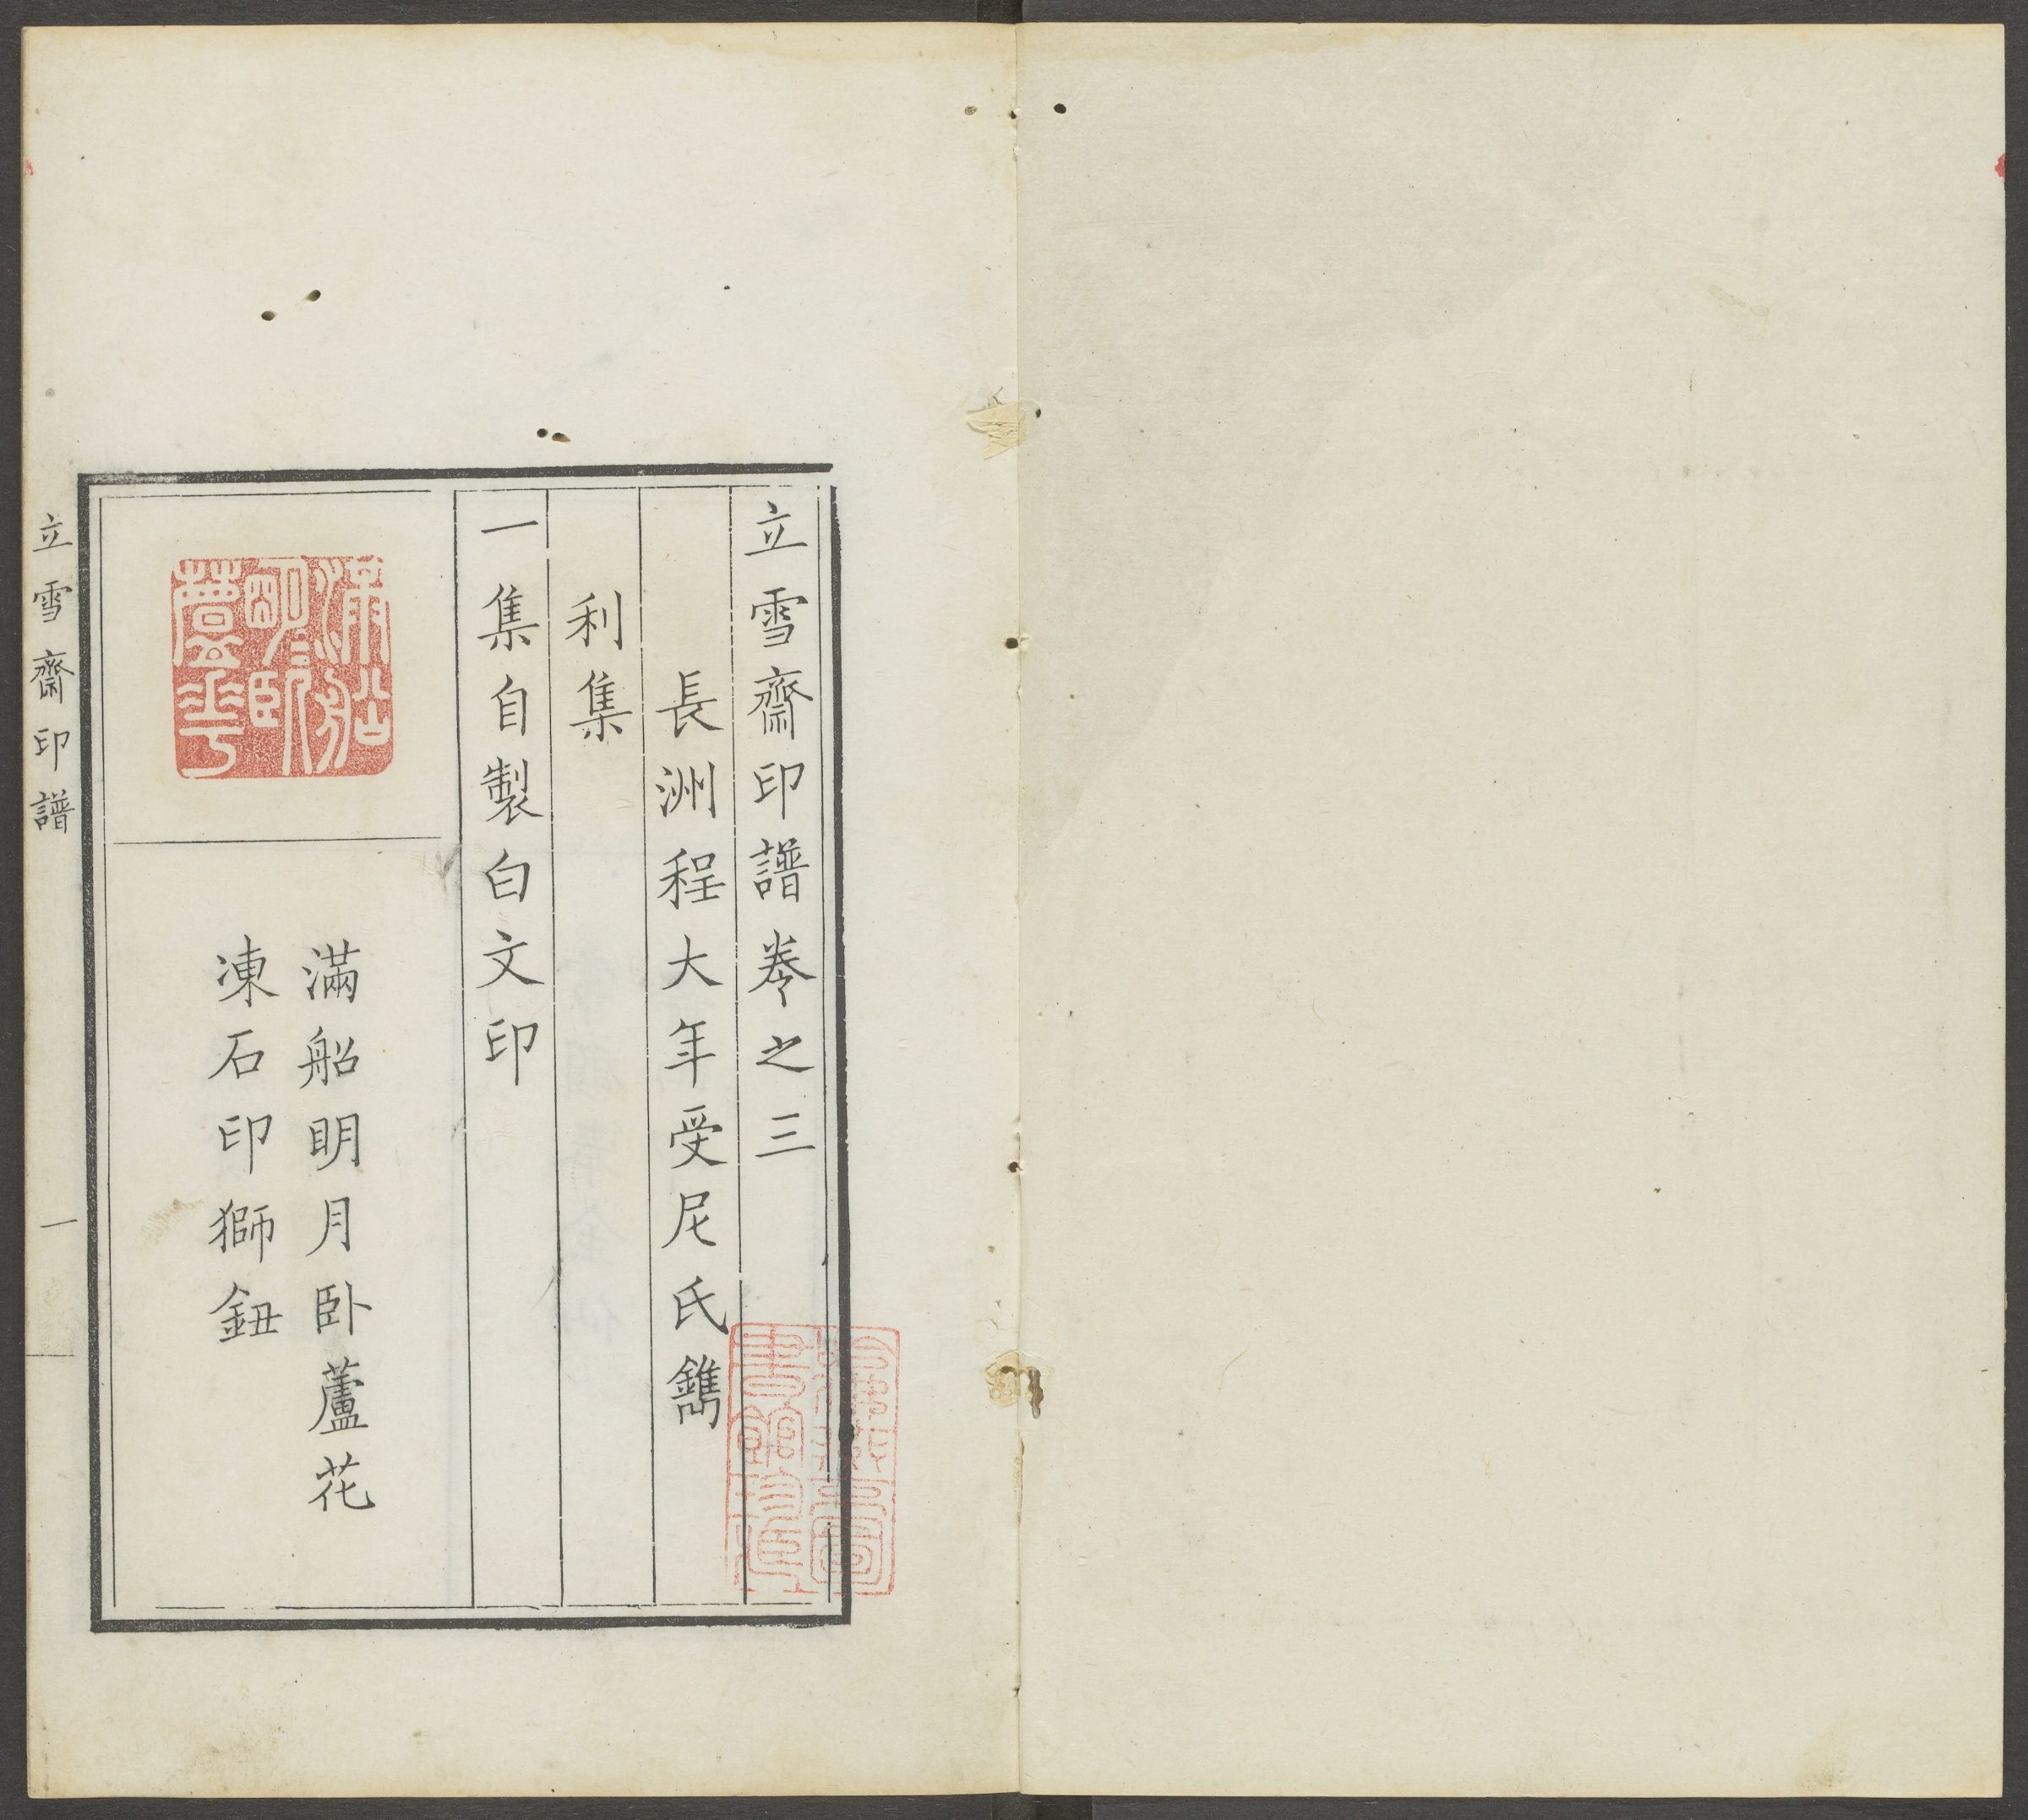 立雪齋印譜卷之三
長洲程大年受尼氏鐫
利集
一集自製白文印
滿船明月卧蘆花
滿船明月卧蘆花
凍石印獅鈕
立雪齋印譜
一